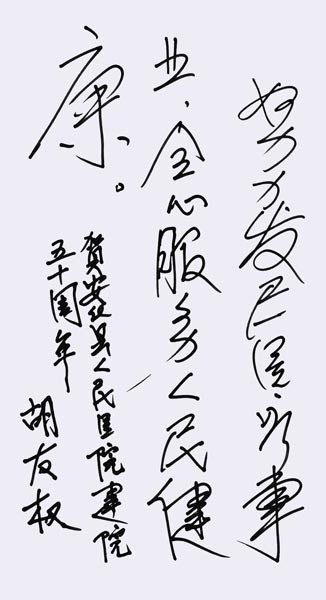 努力发展医疗事
业、全心服务人民健
康。
贺安仁县人民医院建院
五十周年
胡友权